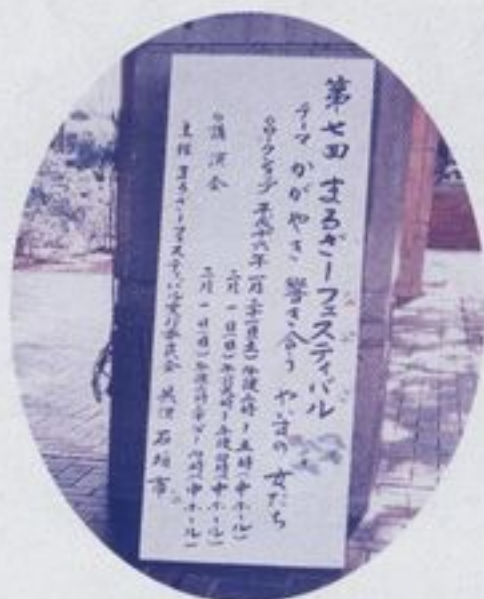 第七回 まるざーフェスティバル
テーマ かがやき 響き合う やいまの 女たち
ワークショップ 平成十六年 一月三十一日(土)午後二時〜五時(中ホール)
二月 一日(日)午前十時〜午後四時(中ホール)
◎講演会 二月 一日(日)午後 (中ホール)
主催 まるざーフェスティバル実行委員会 共催 石垣市